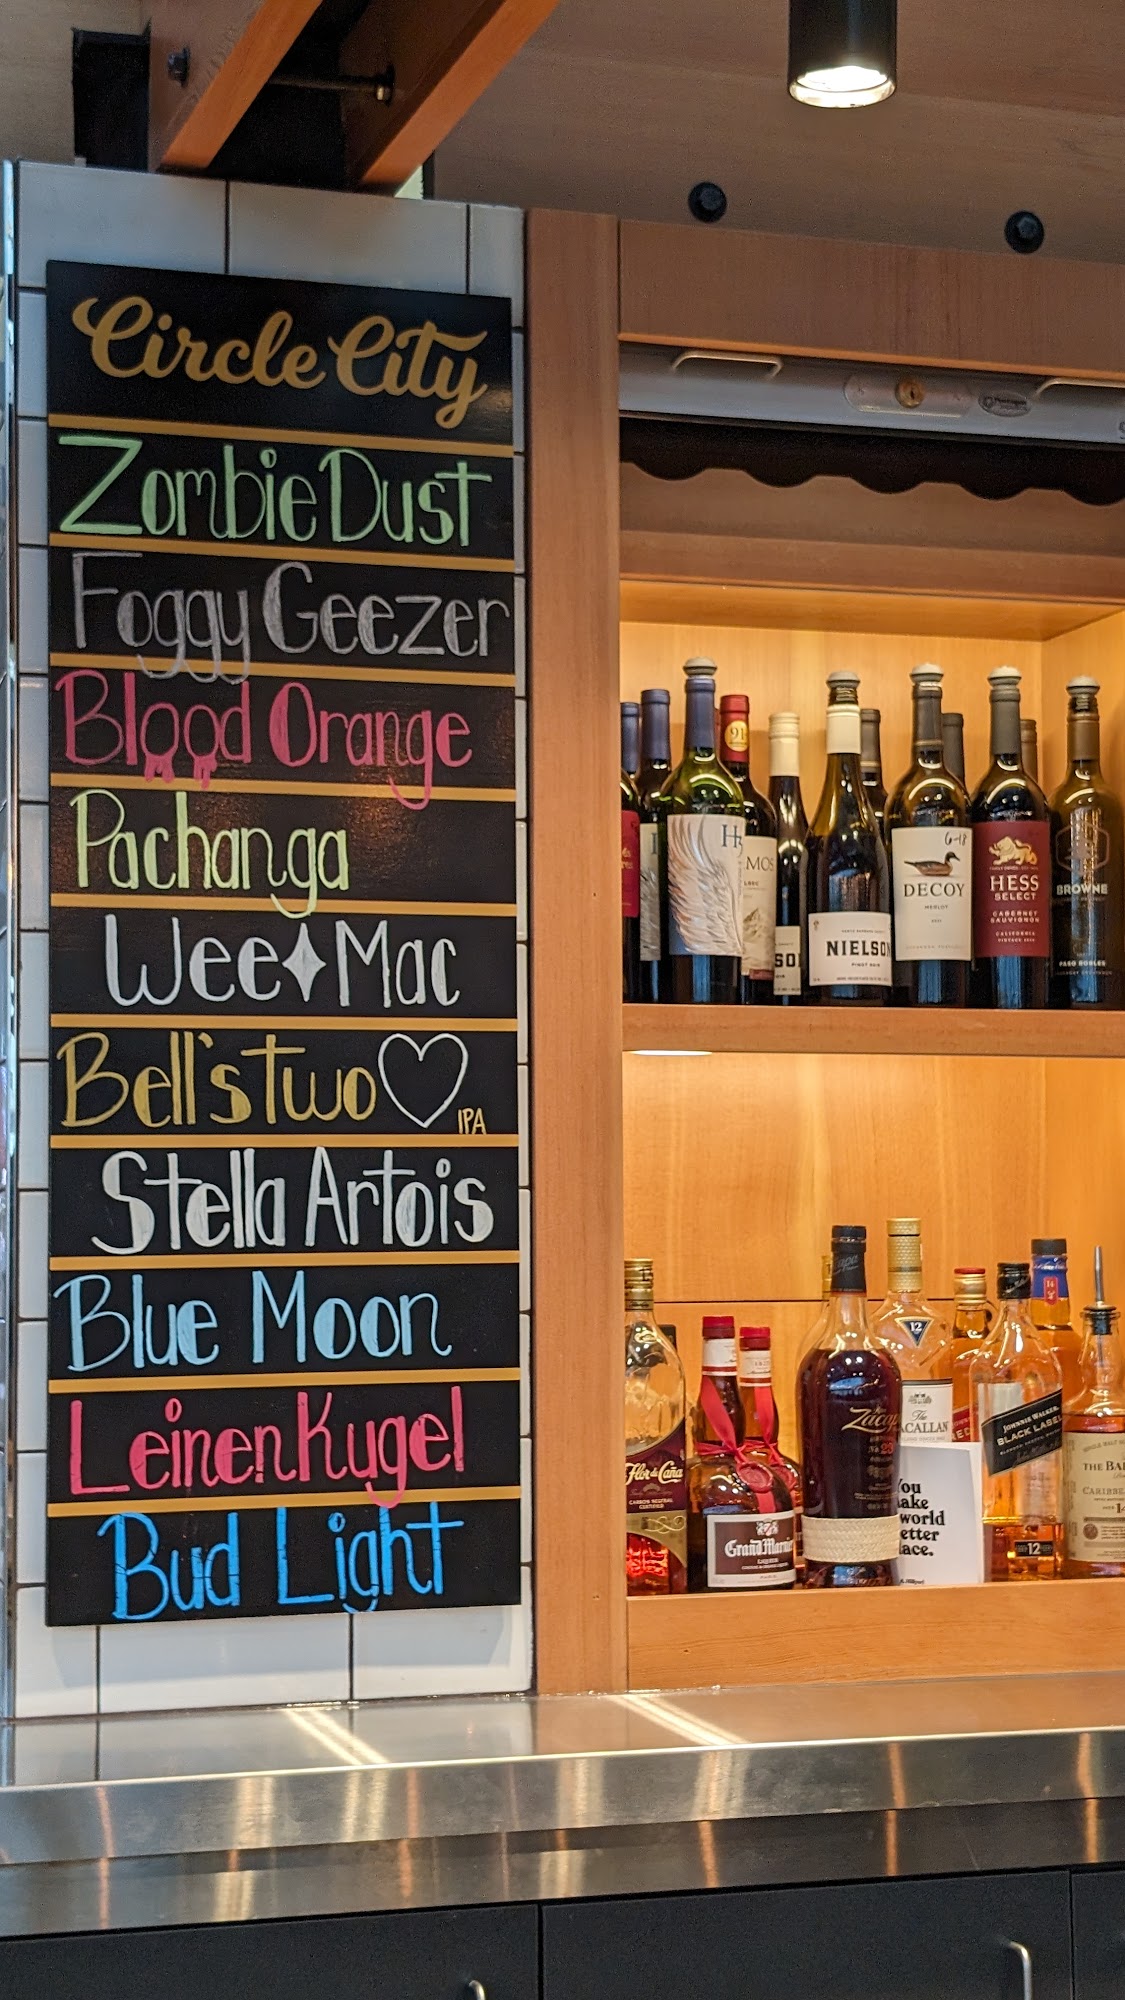 Circle City
Zombie Dust
Foggy Geezer
Blood Orange
Pachanga
Wee Mac
Bell's two
IPA
Stella Artois
Blue Moon
Leinenkugel
Bud Light
91
H
MOS
NIELSON
PINOT NOIR
6-18
DECOY
MERLOT
HESS
SELECT
CABERNET
SAUVIGNON
CALIFORNIA
BROWNE
PASO ROBLES
Flor de Caña
CARBON NEUTRAL
CERTIFIED
Grand Marnier
LIQUEUR
Zacapa
No. 23
12
The
MACALLAN
RED
JOHNNIE WALKER
BLACK LABEL
12
THE BAL
CARIBBE
14
You
make
world
better
lace.